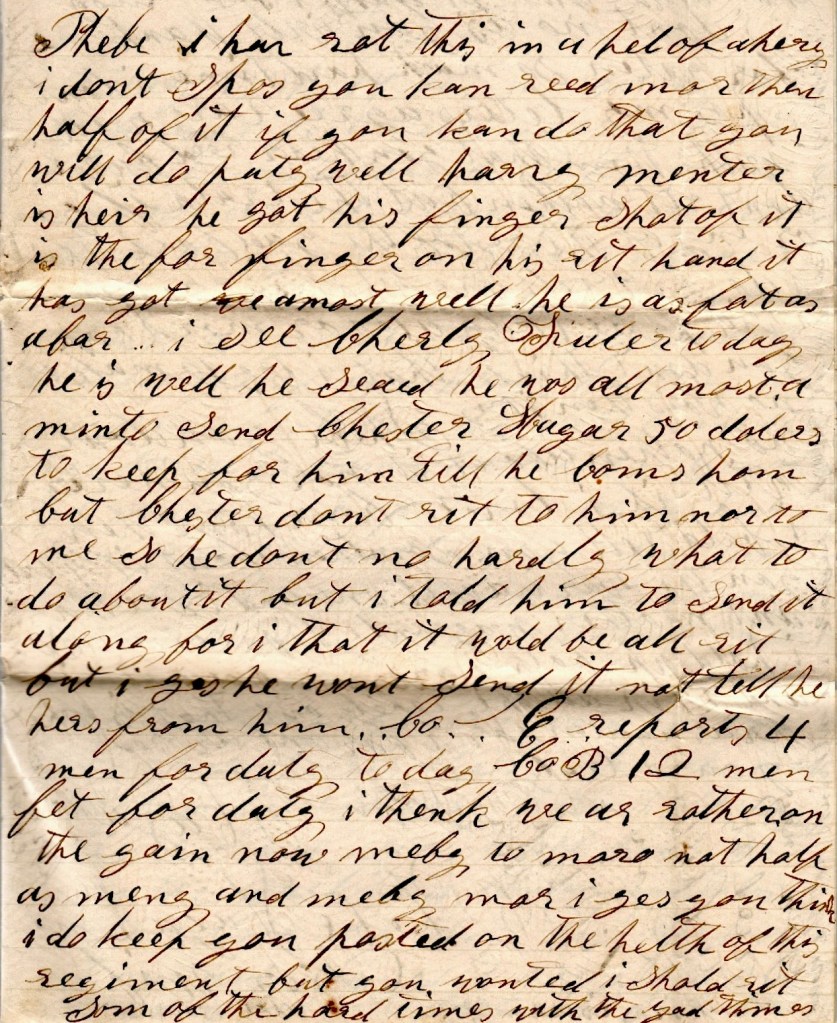 Phebe i hav rot this in a hel of a hery
i dont Spos you kan reed mor then
half of it if you kan do that you
will do paty well harry menter
is heir he got his finger Shot of it
is the for finger on his rit hand it
has got amost well he is as fat as
a bar .. i See Cherly today
he is well he Seaid he wos all most a
minto Send Chester Sugar 50 dolers
to keep for him till he Coms hom
but Chester dont rit to him nor to
me So he dont no hardly what to
do about it but i told him to Send it
along for i that it wold be all rit
but i ges he wont Send it not till he
hers from him .. Co .. E reports 4
men for duty today Co B 12 men
fet for duty i thenk we ar rather on
the gain now meby to moro not half
as meny and meby mor i ges you think
i do keep you posted on the helth of this
regiment but you wonted i Shold rit
Som of the hard times with the god times